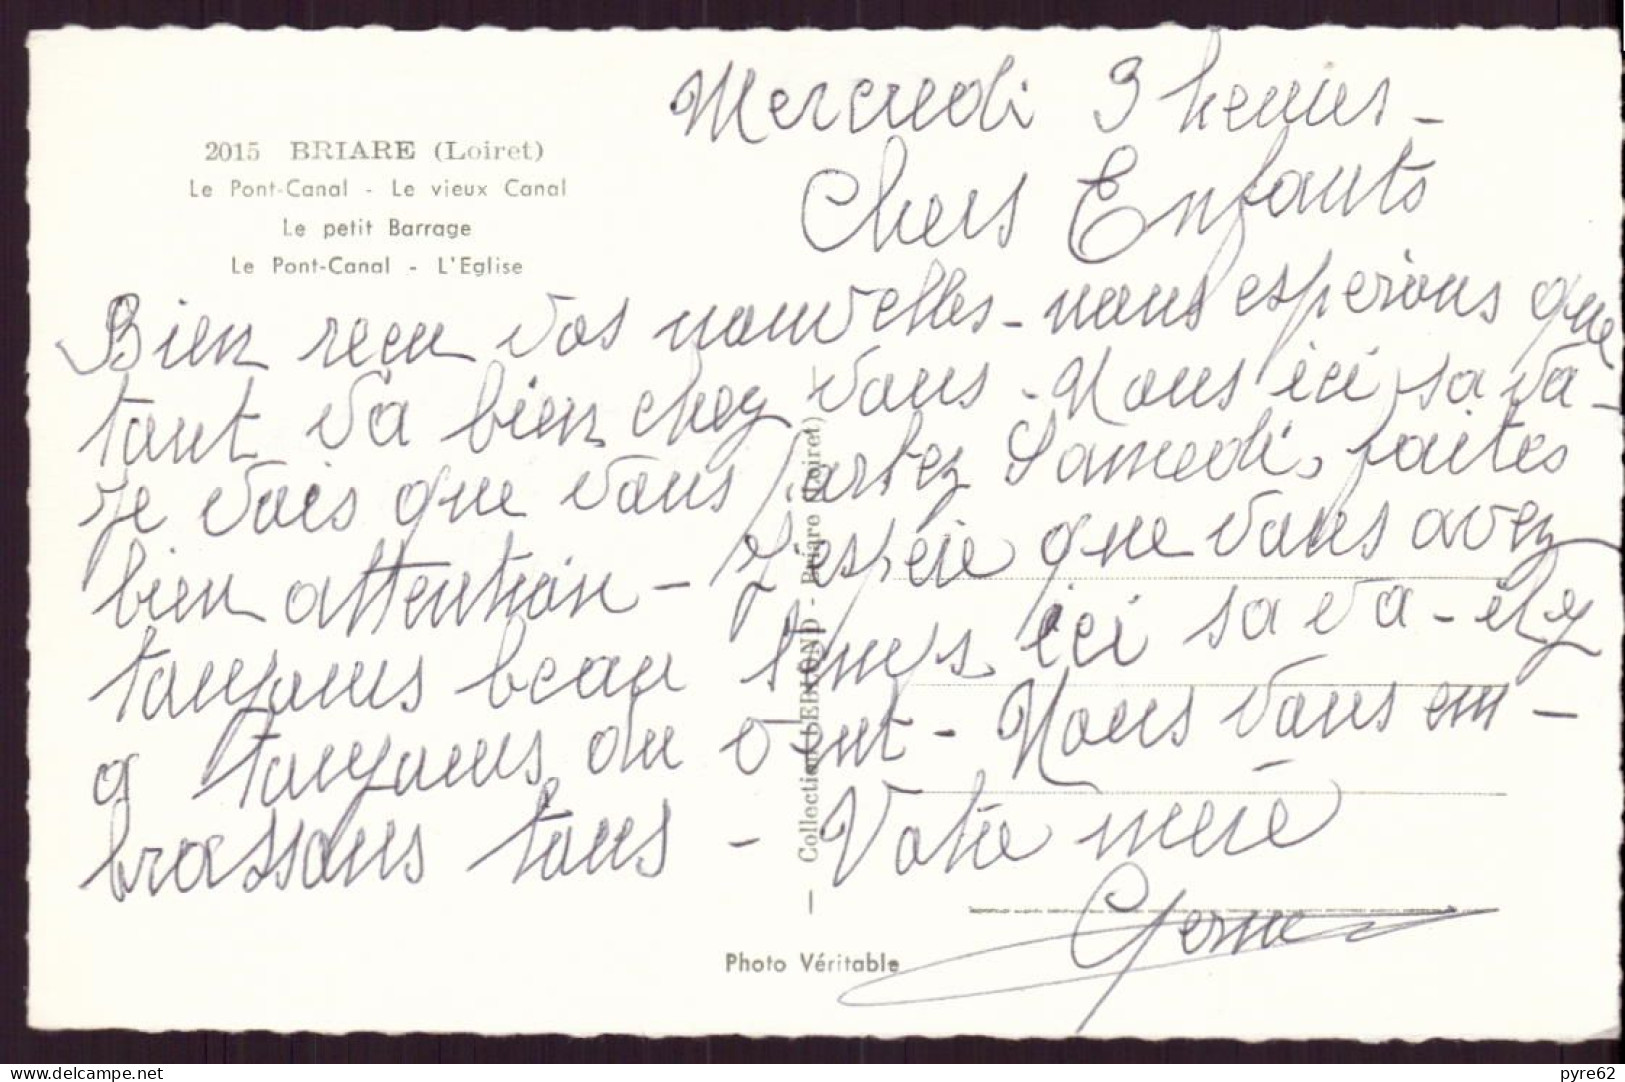 Mercredi 3 heures -
2015 BRIARE (Loiret)
Le Pont-Canal - Le vieux Canal
Le petit Barrage
Le Pont-Canal - L'Eglise
Chers Enfants
Bien reçu vos nouvelles - nous esperons que
tout va bien chez vous - Nous ici sa va -
Je vois que vous partez Samedi, faites
bien attention - J'espère que vous avez
toujours beau temps ici sa va - il y
a toujours du vent - Nous vous em -
brassons tous - Votre mère
Collection LEDIOND - Briare (Loiret)
Photo Véritable
delcampe.net
pyre62